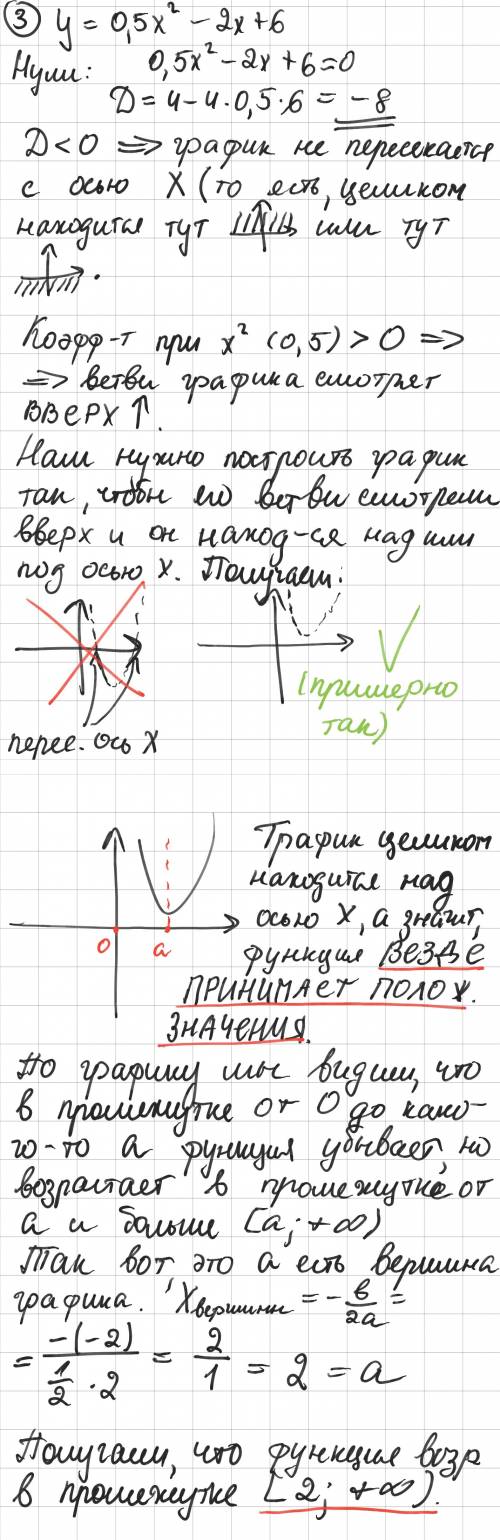 ③ y = 0,5x² − 2x + 6
Нули: 0,5x² − 2x + 6 = 0
D = 4 − 4·0,5·6 = −8
D < 0 => график не пересекается
с осью X (то есть, целиком
находится тут или тут
.
Коэфф-т при x² (0,5) > 0 =>
=> ветви графика смотрят
ВВЕРХ ↑.
Нам нужно построить график
так, чтобы его ветви смотрели
вверх и он наход-ся над или
под осью X. Получаем:
(примерно
так)
перес. ось X
График целиком
находится над
осью X, а значит,
функция ВЕЗДЕ
ПРИНИМАЕТ ПОЛОЖ.
ЗНАЧЕНИЯ.
0 a
По графику мы видим, что
в промежутке от 0 до како-
го-то a функция убывает, но
возрастает в промежутке от
a и больше [a; +∞)
Так вот, это a есть вершина
графика. Xвершины = −в/2a =
= −(−2)/(1/2 · 2) = 2/1 = 2 = a
Получаем, что функция возр
в промежутке [2; +∞).